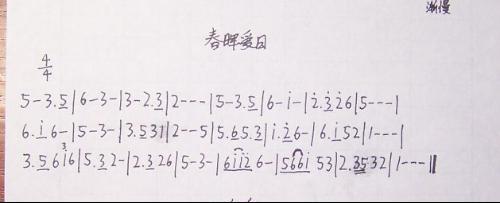 渐慢
春晖爱日
4/4
5-3.5|6-3-|3-2.3|2---|5-3.5|6-i-|i̇2.3̇26|5---|
6.i6-|5-3-|3.531|2--5|5.65.3|i.26-|6.i52|1---|
3.56i6|5.32-|2.326|5-3-|6ii2 6-|566i 53|2.3532|1---‖